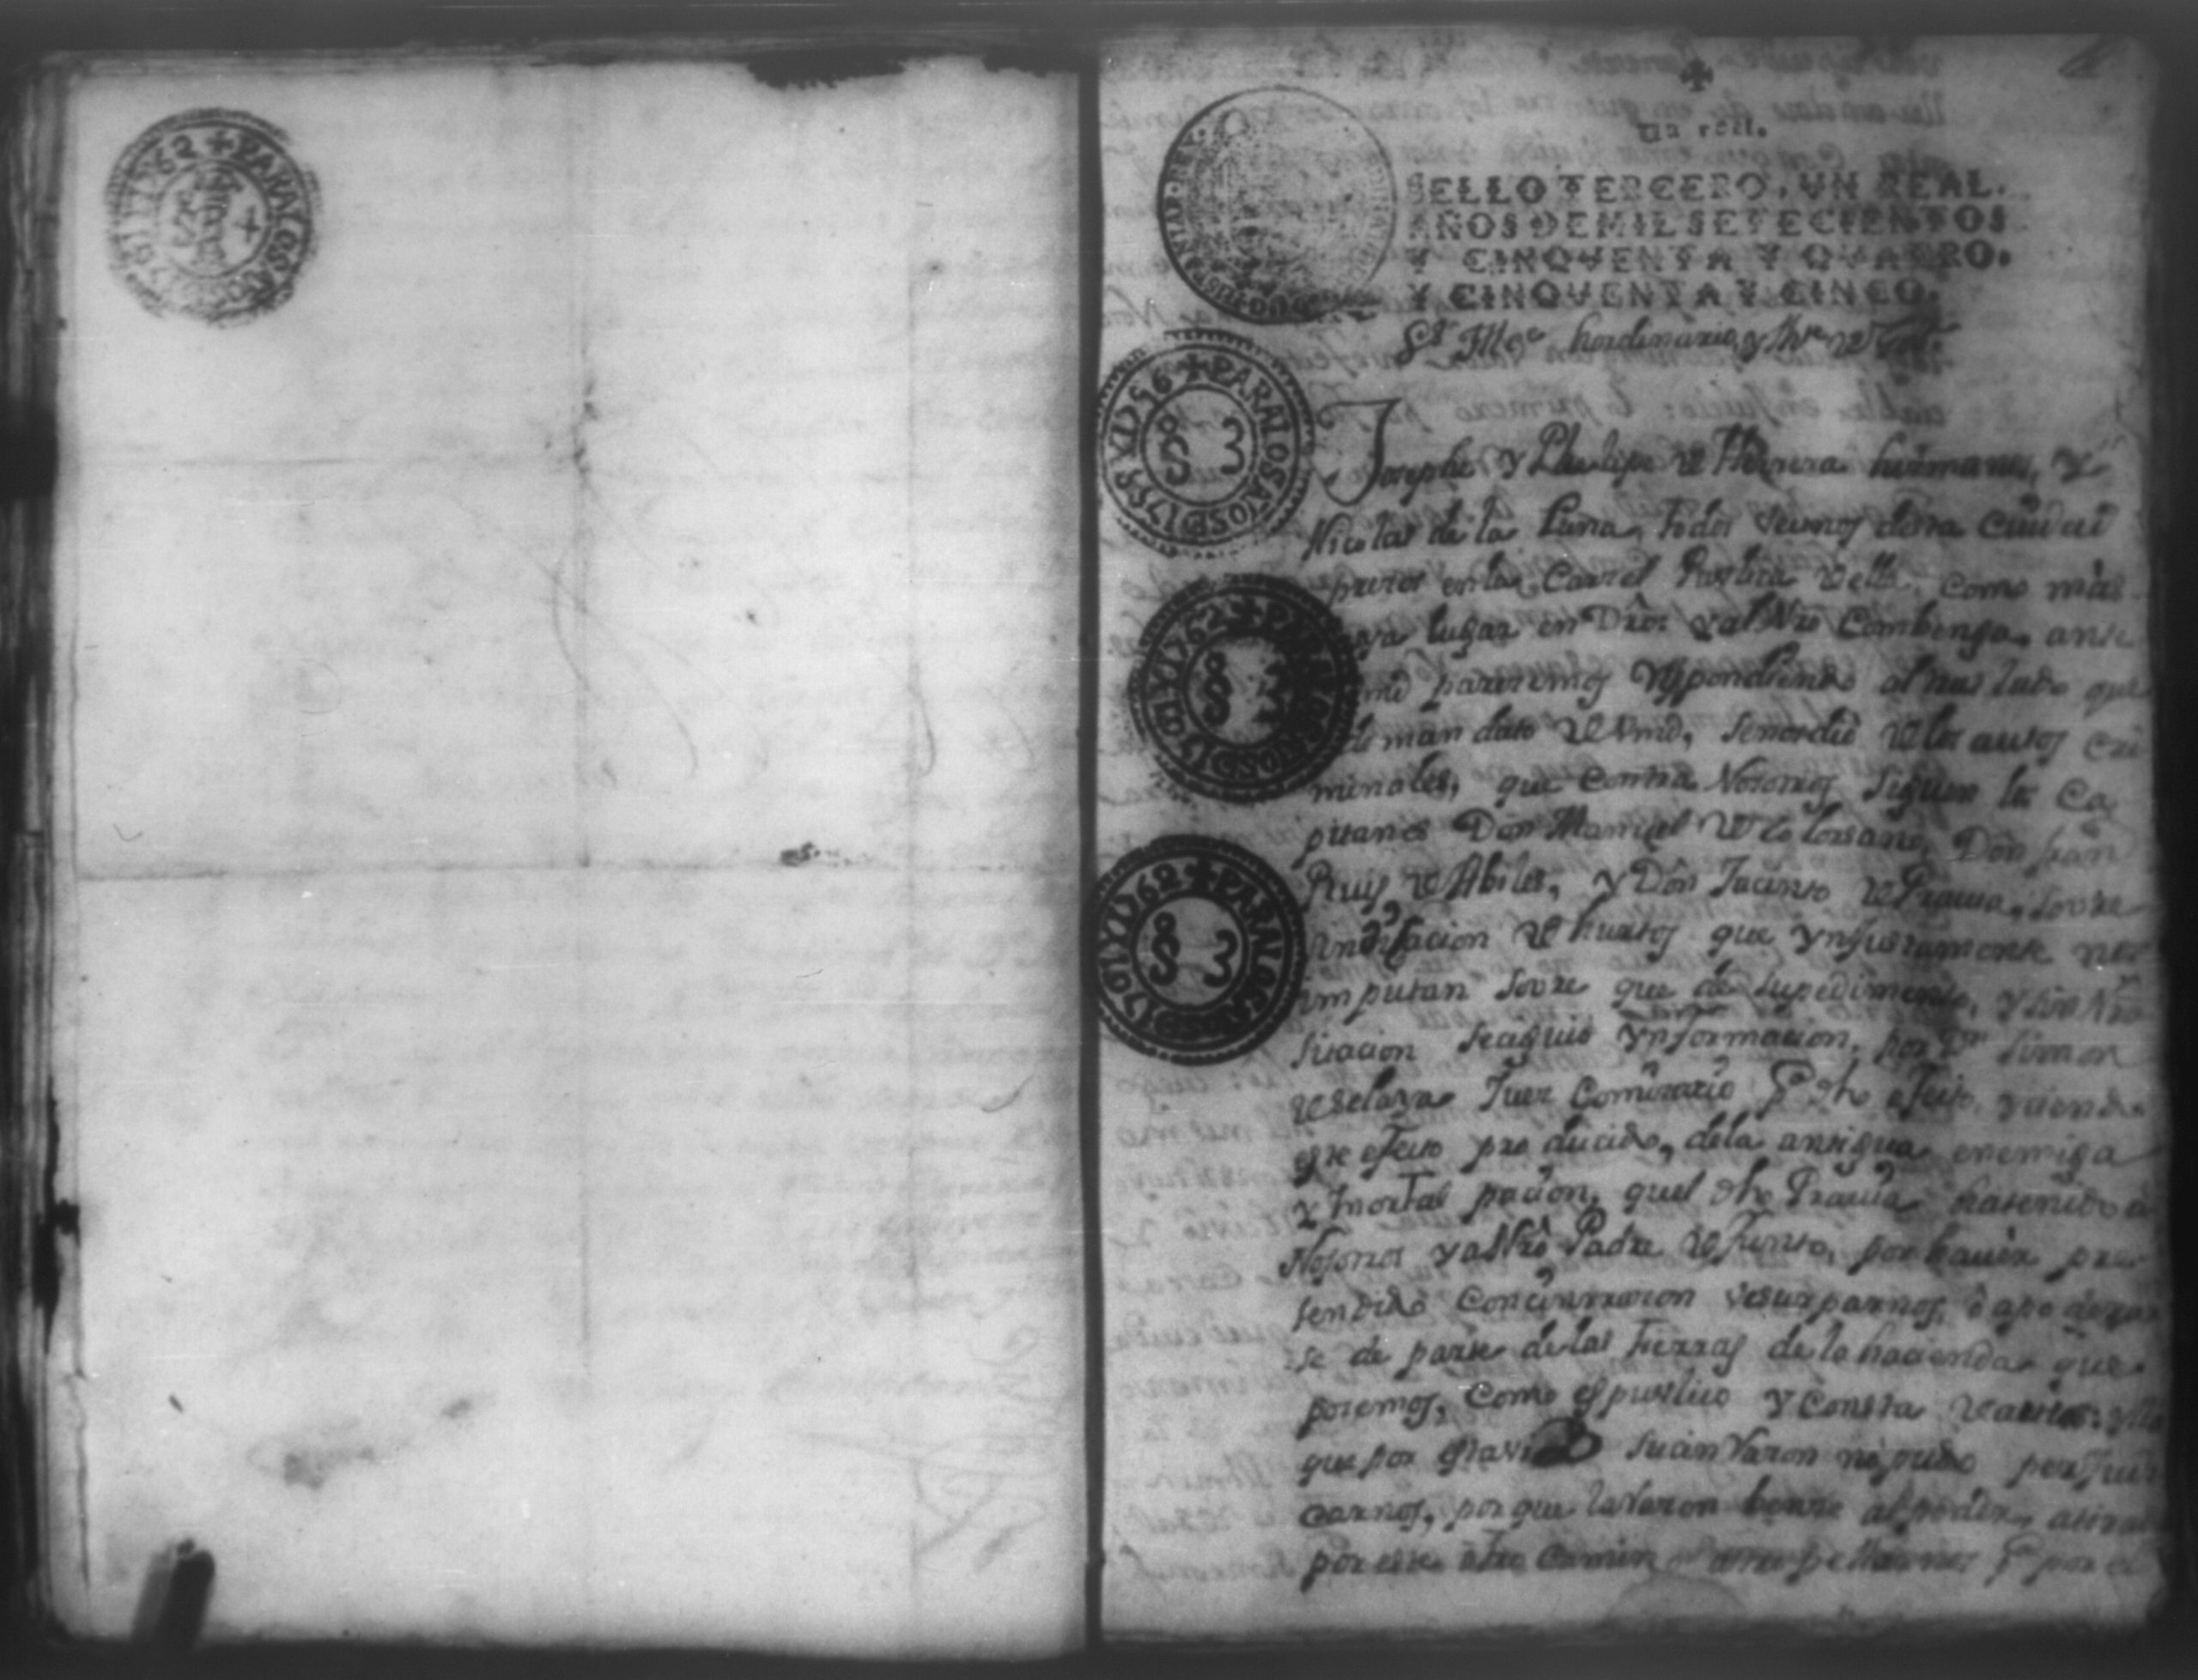 1761 Y 1762 + PARA LOS AÑOS D
Un real.
SELLO TERCERO, UN REAL.
AÑOS DE MIL SETECIENTOS
Y CINQVENTA Y QUATRO.
Y CINQVENTA Y CINCO.
+ PARA LOS AÑOS D 1755 Y 1756
S 3
+ PARA LOS AÑOS D 1761 Y 1762
S 3
+ PARA LOS AÑOS D 1761 Y 1762
S 3
hordinario y
Joseph y Phelipe de Herrera hermanos, y
Nicolas de la Luna, todos vecinos desta Ciudad
presos en la Carcel Publica della, como mas
aya lugar en Dro: y al Nro Combenga, ante
Vmd pareremos respondiendo al traslado que
de mandato de Vmd, senordió de los autos cri
minales, que contra Nosotros siguen los Ca
pitanes Don Manuel de Solorsano, Don Juan
Ruis de Abiles, y Don Jacinto de Pravia, sovre
que ynjustamente nos
ymputan sovre que de supedimento, y sin Nra
sitacion se siguió ynformacion, por Dn Simon
de Selaya Juez Comisario, Pa dho efecto, y siendo
este efecto producido, de la antigua enemiga
y mortal pacion, quel dho Pravia ha tenido a
Nosotros y a Nro Padre difunto, por haver pre
tendido con cinrrazon desurparnos, o apoderar
se de parte de las tierras de la hacienda que
poremos, como es publico y consta de autos: y
que por su cin Razon no pudo perjudi
carnos, por que la Razon bense al poder,
por este otro camino Pa por el